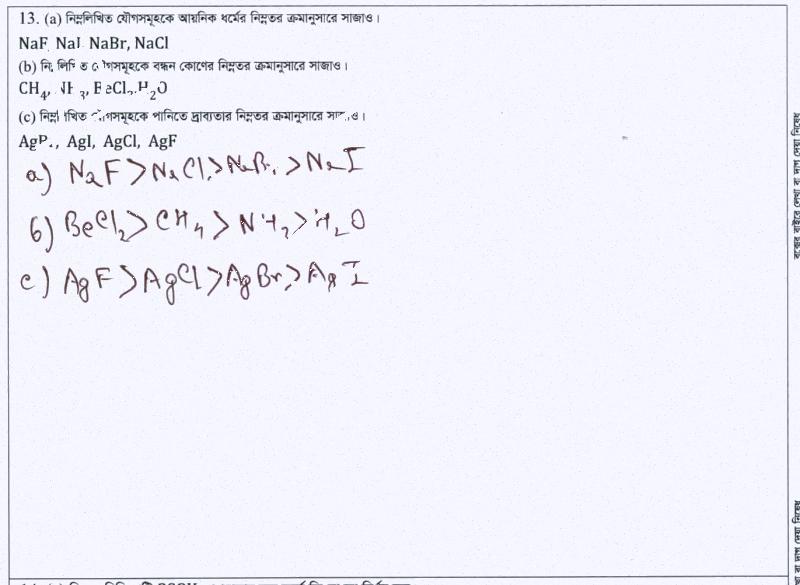 13. (a) নিম্নলিখিত যৌগসমূহকে আয়নিক ধর্মের নিম্নতর ক্রমানুসারে সাজাও।
NaF NaI NaBr, NaCl
(b) লিখিত যৌগসমূহকে বন্ধন কোণের নিম্নতর ক্রমানুসারে সাজাও।
CH₄, NH₃, BeCl₂, H₂O
(c) নিম্নলিখিত যৌগসমূহকে পানিতে দ্রাব্যতার নিম্নতর ক্রমানুসারে সাজাও।
AgBr, AgI, AgCl, AgF
a) NaF > NaCl > NaBr > NaI
b) BeCl₂ > CH₄ > NH₃ > H₂O
c) AgF > AgCl > AgBr > AgI
বক্সের বাইরে লেখা বা দাগ দেয়া নিষেধ
বা দাগ দেয়া নিষেধ